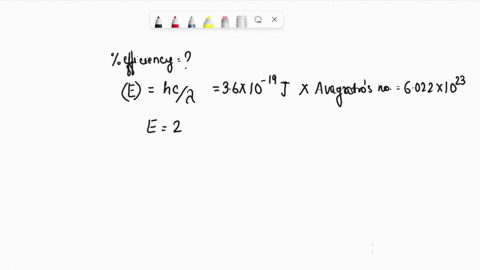 % efficiency = ?
(E) = hc/λ = 3.6×10⁻¹⁹ J × Avogadro's no. = 6.022×10²³
E = 2